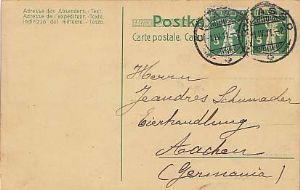 Adresse des Absenders. - Text.
Adresse de l'expéditeur. - Texte.
Indirizzo del mittente. - Testo.
Postkarte
Carte postale.
Herrn
Jeandres Schumacher
Eierhandlung
Aachen
(Germania)